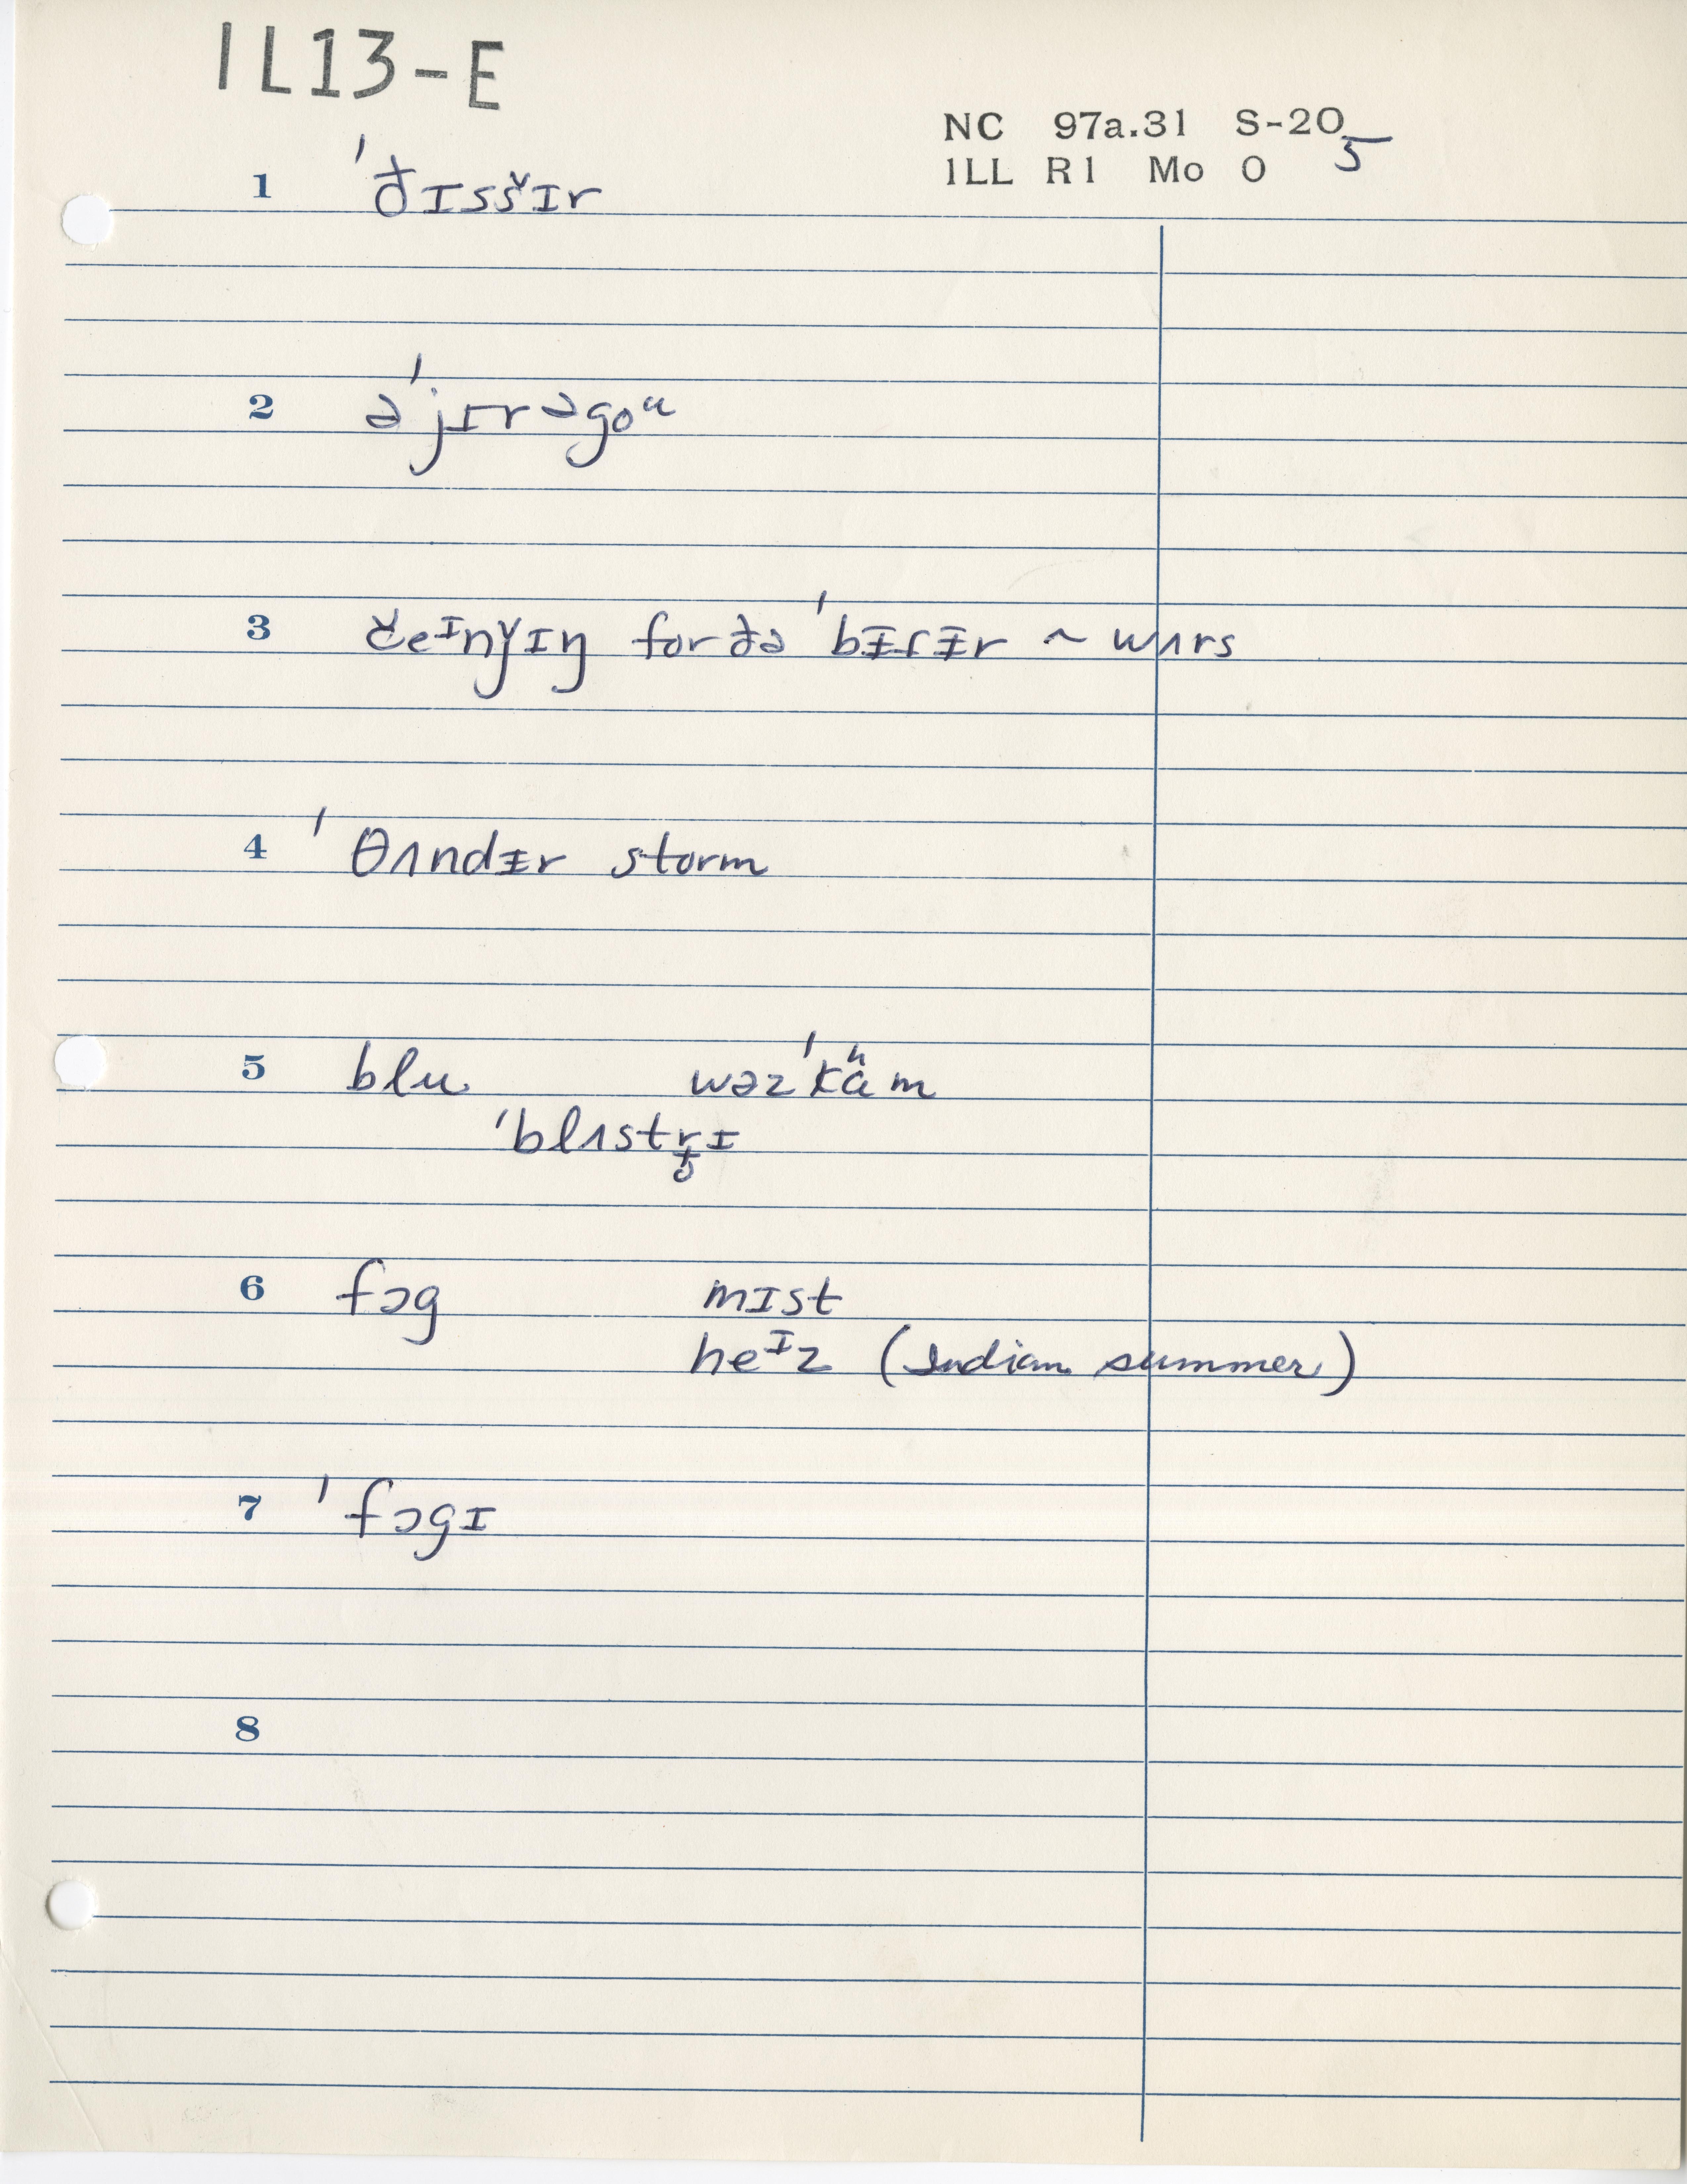 IL13-E
NC 97a.31 S-20 5
ILL R1 Mo O
1 'ðɪsšɪr
2 ə'jɪrəgoᵘ
3 čeᶦnǰɪŋ for ðə 'bᵻɾᵻr ~ wʌrs
4 'θʌndᵻr storm
5 blu wəz'käᵸm
'blʌstr̥ɪ
6 fɔg mɪst
heᶦz (Indian summer)
7 'fɔgɪ
8